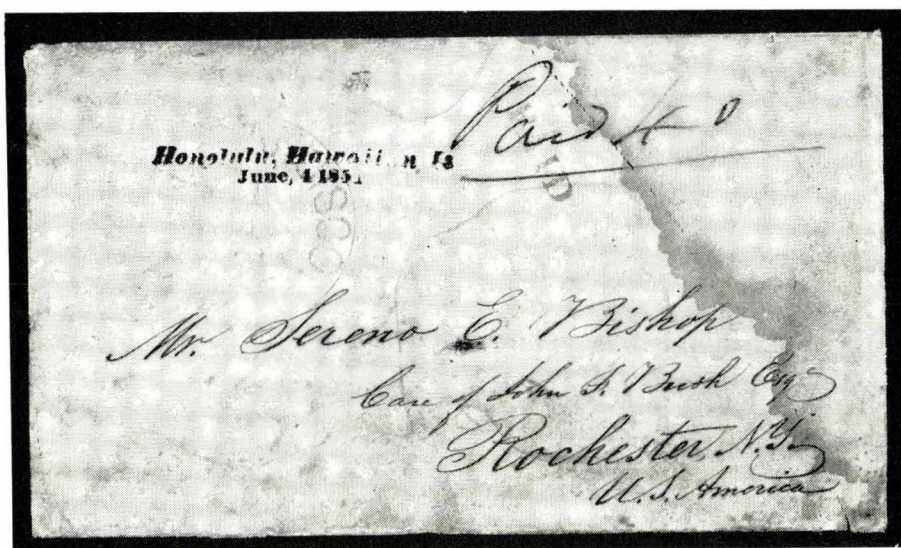 Paid 40
Honolulu, Hawaiian Is
June, 4 1851
Mr. Sereno E. Bishop
Care of John F. Bush Esq
Rochester, N.Y.
U.S. America